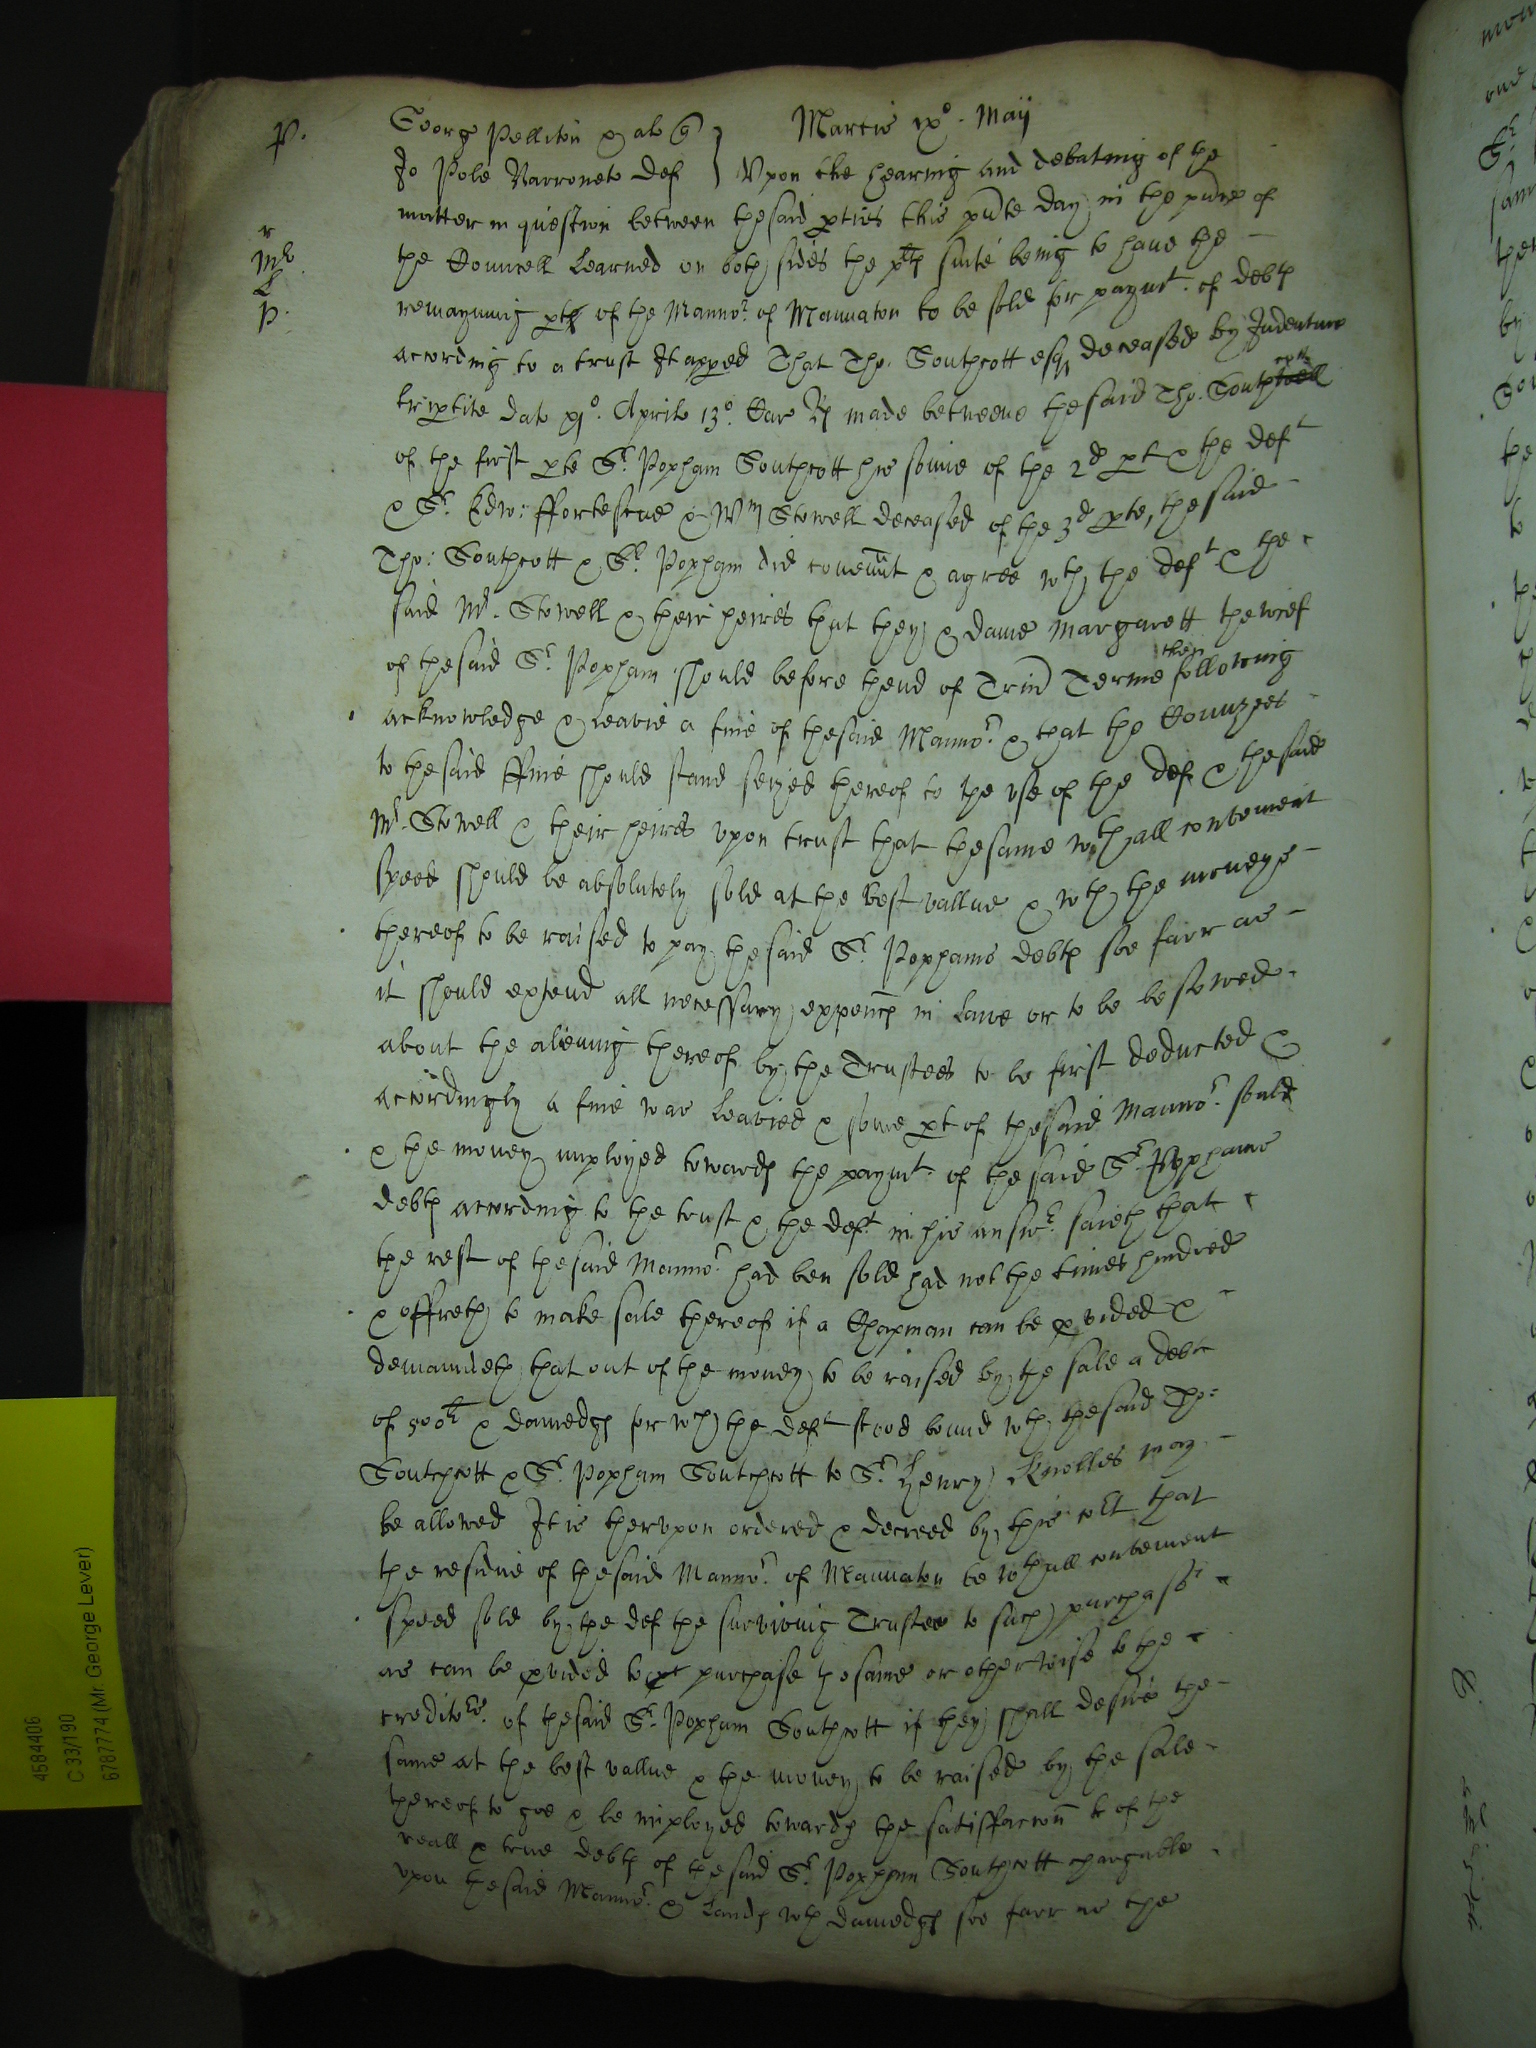 P.
George Pelliton & al q
Martis ixo. Maij
Jo Pole Barronets def } Upon the hearing and debating of the
matter in question between thesaid pties this pnte day in the pnce of
r
Mr
L
P.
the Councell Learned on both sides the pltfs suite being to have the –
remayning pte of the Manno.r of Mannaton to be sold for paymt. of debts
according to a trust It apped That Tho. Southcott esqr deceased by Indenture
triptite dat xio. Aprilis 13o. Car Rs made betweene thesaid Tho. Southwell cott
of the first pte Sr. Popham Southcott his sonne of the 2d pt & the deft
& Sr. Edw: ffortescue & Wm Stowell deceased of the 3d pte, thesaid –
Tho: Southcott & Sr. Popham did covennt & agree wth the deft & the
said Mr. Stowell & their heires that they & dame Margarett the wief
of thesaid Sr. Popham should before thend of Trin Terme then following
acknowledge & leavie a fine of thesaid Manno.r & that the Conuzees –
to thesaid ffine should stand seized thereof to the use of the def & thesaid
Mr. Stowell & their heires upon trust that thesame wth all convenient
speed should be absolutely sold at the best vallue & wth the moneys –
thereof to be raised to pay thesaid Sr. Pophams debts soe farr as –
it should extend all necessary expencs in Lawe or to be bestowed
about the aliening thereof by the Trustees to be first deducted &
accordingly a fine was leavied & some pt of thesaid Manno.r sould
& the money imployed towards the paymt. of thesaid Sr. Pophams
debts according to the trust & the deft in his answ.r saieth that
the rest of thesaid Manno.r had ben sold had not the times hindred
& offreth to make sale thereof if a Chapman can be pvided & –
demaundeth that out of the money to be raised by the sale a debt
of 500li & damedgs for wch the deft stood bound wth thesaid Tho:
Southcott & Sr. Popham Southcott to Sr. Henry Knolles may –
be allowed It is therupon ordered & decreed by this cort that
the residue of thesaid Manno.r of Mannaton be wth all convenient
speed sold by the def the surviving Trustee to such purchasrs
as can be pvided to purchase thesame or otherwise to the
creditors. of thesaid Sr. Popham Southcott if they shall desire the –
same at the best vallue & the money to be raised by the sale –
thereof to goe & be imployed towards the satisffaccon of the
reall & true debts of thesaid Sr. Popham Southcott chargable
upon thesaid Manno.r & Lands wth damedgs soe farr as the
4584406
C 33/190
6787774 (Mr. George Lever)